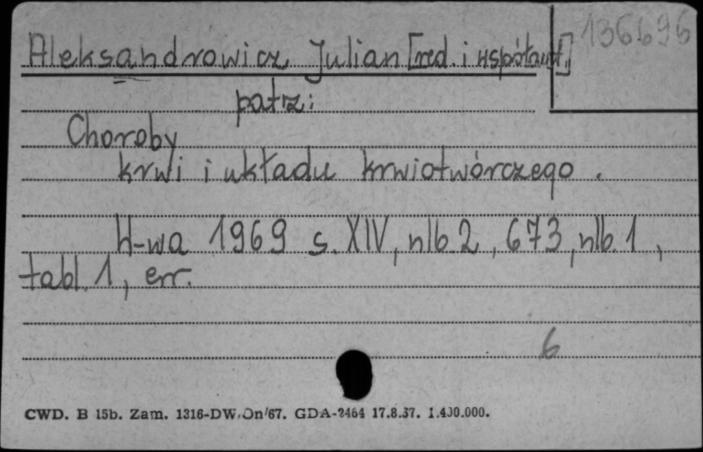 136696
Aleksandrowicz Julian [red. i współaut.]
patrz:
Choroby
krwi i układu krwiotwórczego.
W-wa 1969 s. XIV, nlb 2, 673, nlb 1,
tabl. 1, err.
6
CWD. B 15b. Zam. 1316-DW/On/67. GDA-2464 17.8.67. 1.400.000.